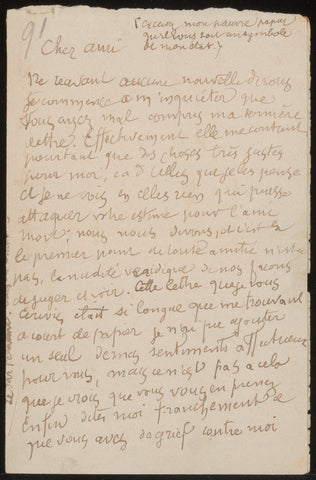 91
(Excusez mon pauvre papier
qu'il vous soit un symbole
de mon état.)
Cher ami
Ne recevant aucune nouvelle de vous
je commence a m'inquiéter que
vous ayez mal compris ma dernière
lettre. Effectivement elle ne contenait
pourtant que des choses très justes
pour moi, c à d telles que je les pense
et je ne vois en elles rien qui puisse
attaquer votre estime pour l'ami
mort; nous nous devons, et c'est là
le premier point de toute amitié n'est ce
pas, la nudité véridique de nos façons
de juger et voir. Cette lettre que je vous
écrivis était si longue que me trouvant
a court de papier je n'ai pu ajouter
un seul de mes sentiments affectueux
pour vous, mais ce n'est pas a cela
que je crois que vous vous en prenez
Enfin dites moi franchement ce
que vous avez de grief contre moi